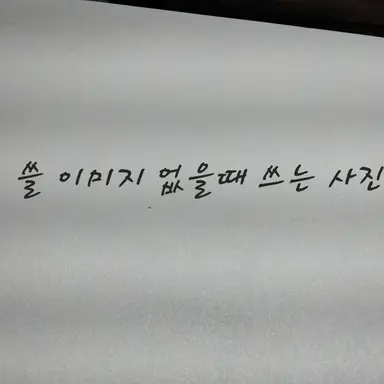 쓸 이미지 없을때 쓰는 사진